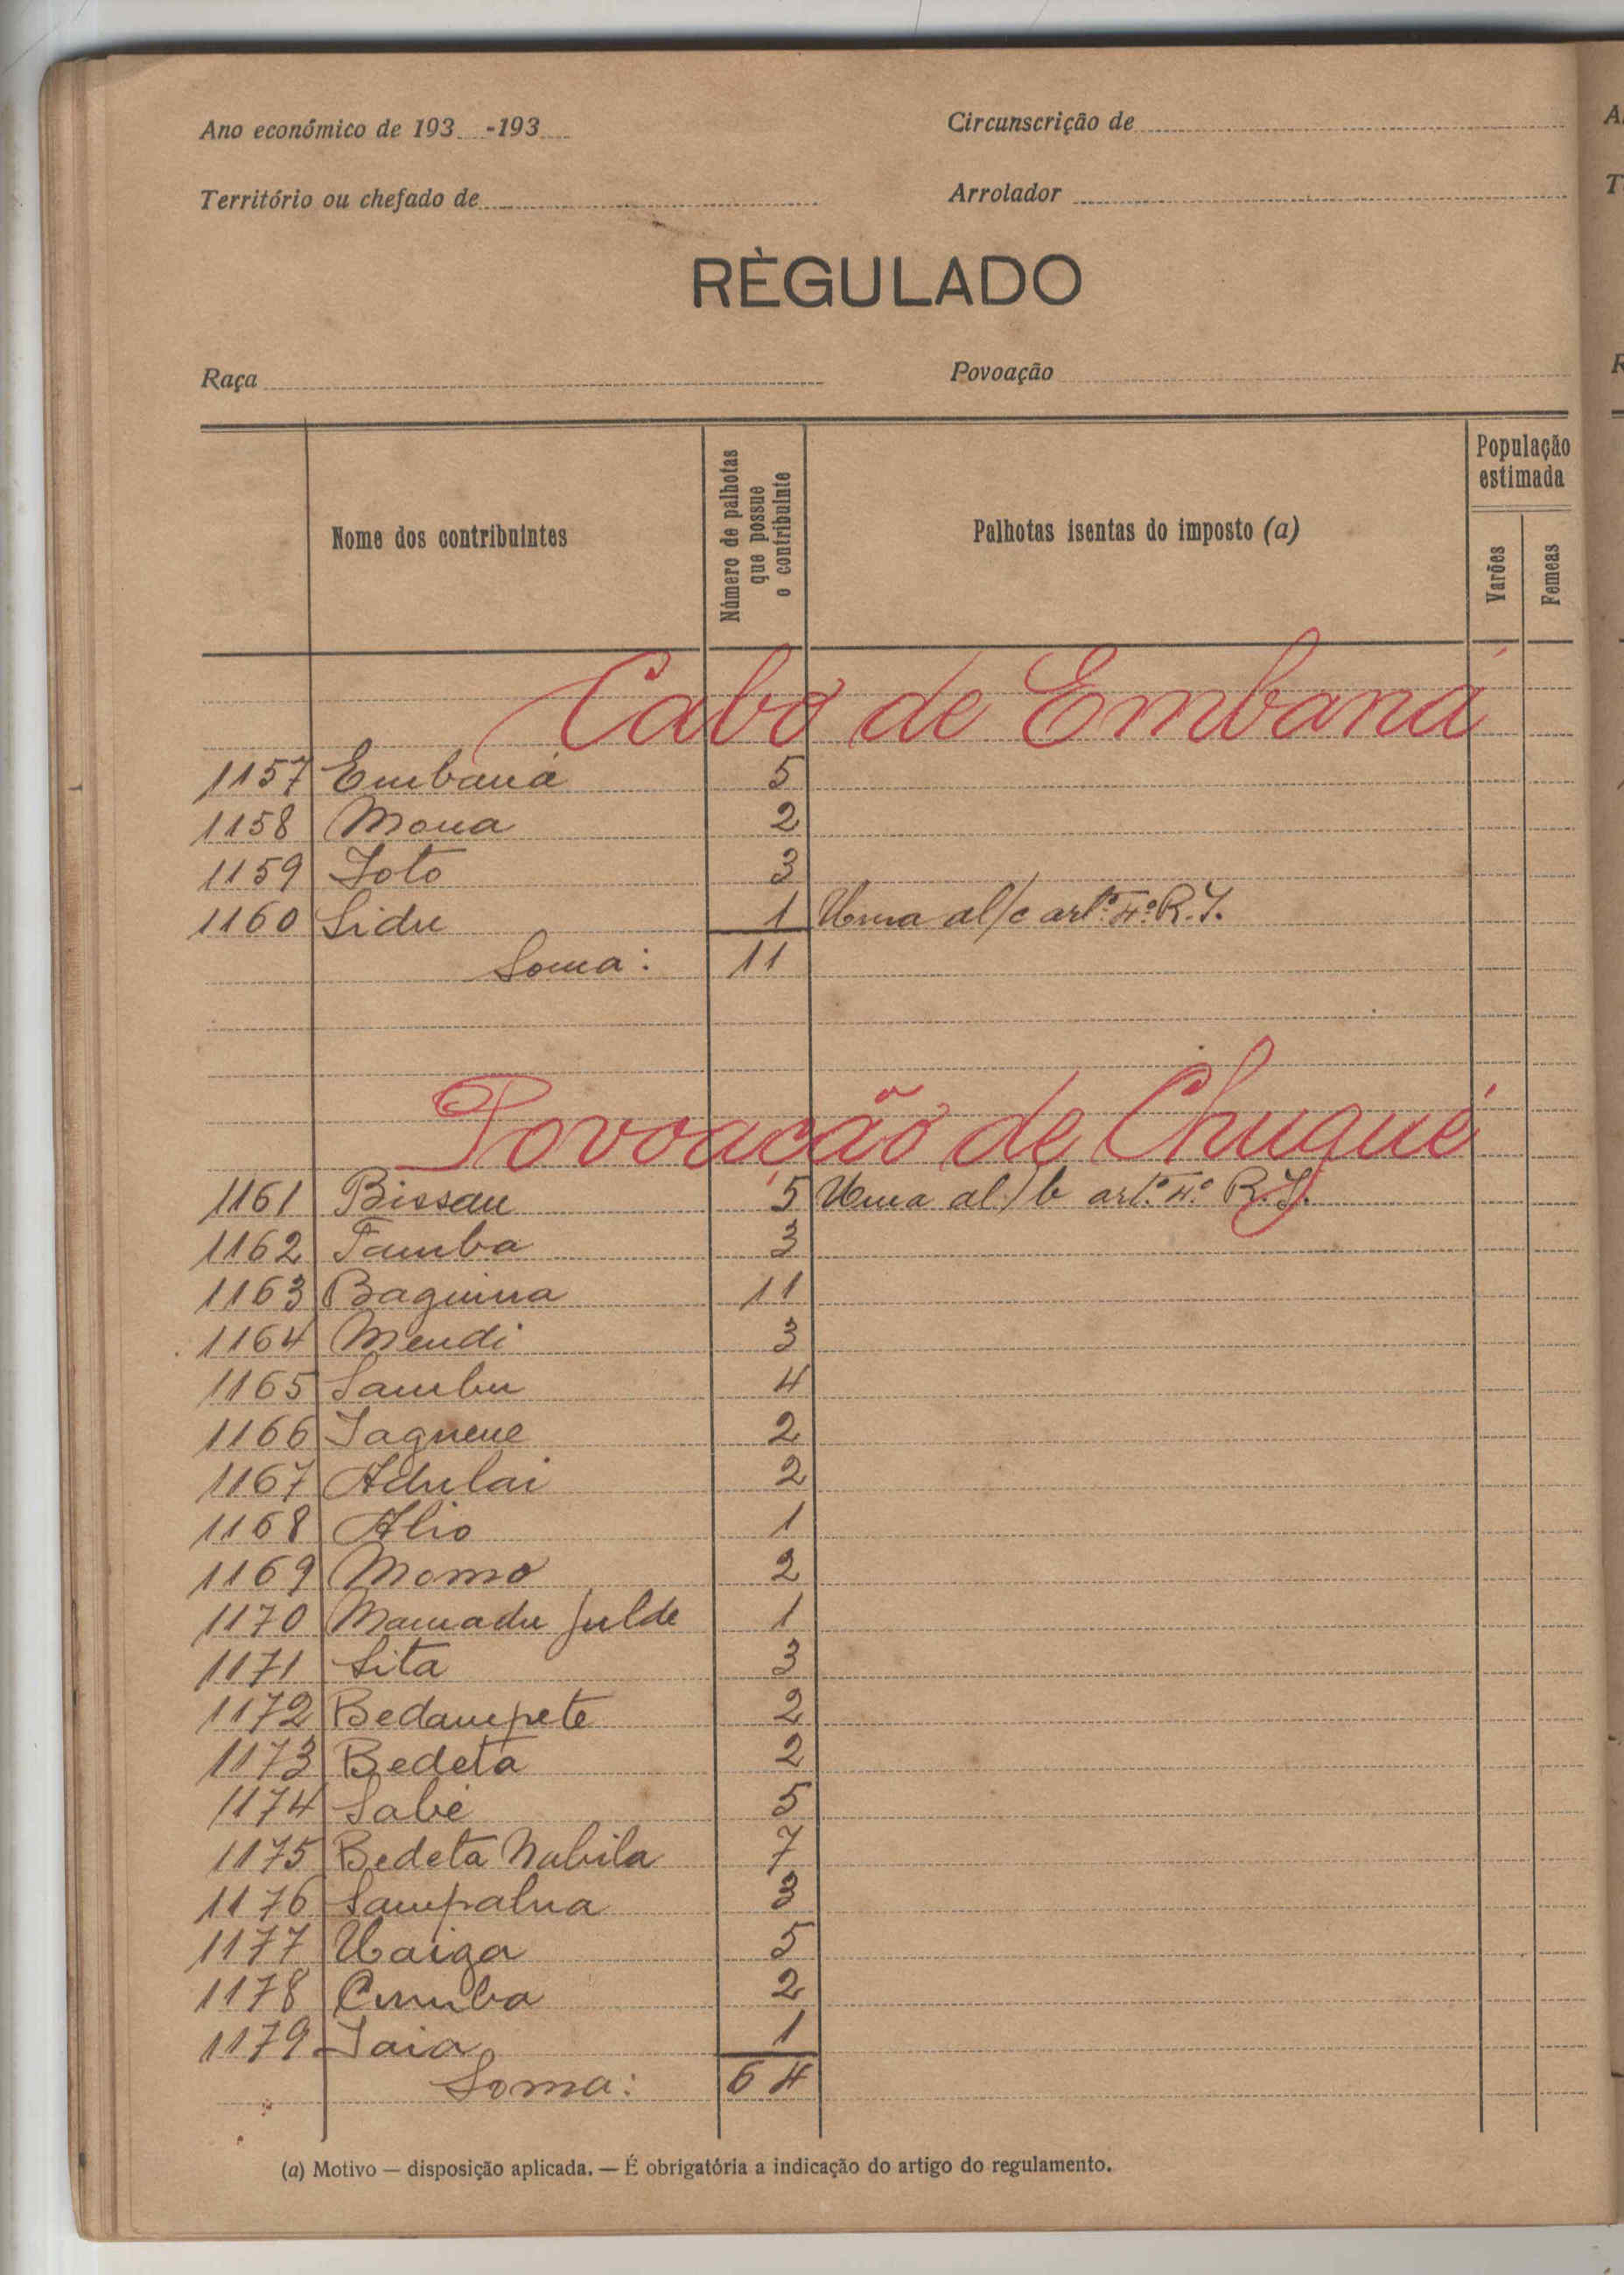 Ano económico de 193 -193
Circunscrição de
Território ou chefado de
Arrolador
RÈGULADO
Raça
Povoação
Nome dos contribuintes
Número de palhotas que possue o contribuinte
Palhotas isentas do imposto (a)
População estimada
Varões
Femeas
Cabo de Embaná
1157 Embaná 5
1158 Mona 2
1159 Toto 3
1160 Sidu 1 Uma al/c artº 4º R.I.
Soma: 11
Povoação de Chugué
1161 Bissau 5 Uma al/b artº 4º R.I.
1162 Famba 3
1163 Baguina 11
1164 Mendi 3
1165 Sambu 4
1166 Iaguene 2
1167 Adulai 2
1168 Alio 1
1169 Momo 2
1170 Mamadu Julde 1
1171 Sita 3
1172 Bedampete 2
1173 Bedeta 2
1174 Sabé 5
1175 Bedeta Nabila 7
1176 Sampalna 3
1177 Uaiga 5
1178 Cumba 2
1179 Iaia 1
Soma: 64
(a) Motivo — disposição aplicada. — É obrigatória a indicação do artigo do regulamento.